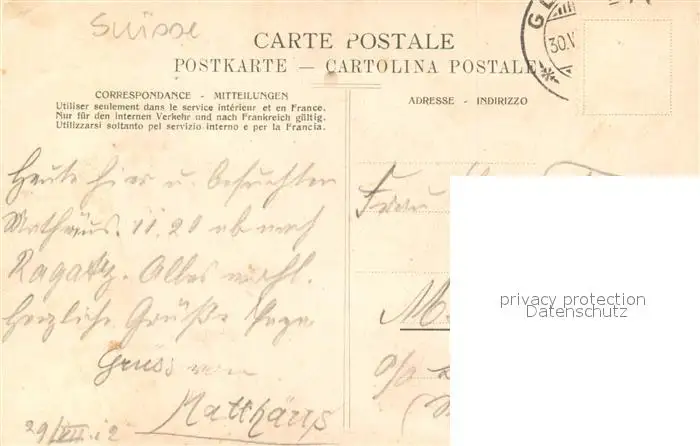 Suisse
CARTE POSTALE
POSTKARTE — CARTOLINA POSTALE
GL
30.V
CORRESPONDANCE - MITTEILUNGEN
Utiliser seulement dans le service intérieur et en France.
Nur für den internen Verkehr und nach Frankreich gültig.
Utilizzarsi soltanto pel servizio interno e per la Francia.
ADRESSE - INDIRIZZO
Heute hier u. besuchten
Mathäus. 11.20 ab nach
Ragatz. Alles wohl.
Herzliche Grüße Papa
Gruss von
Matthäus
29/VII.12
Frau
M
privacy protection
Datenschutz